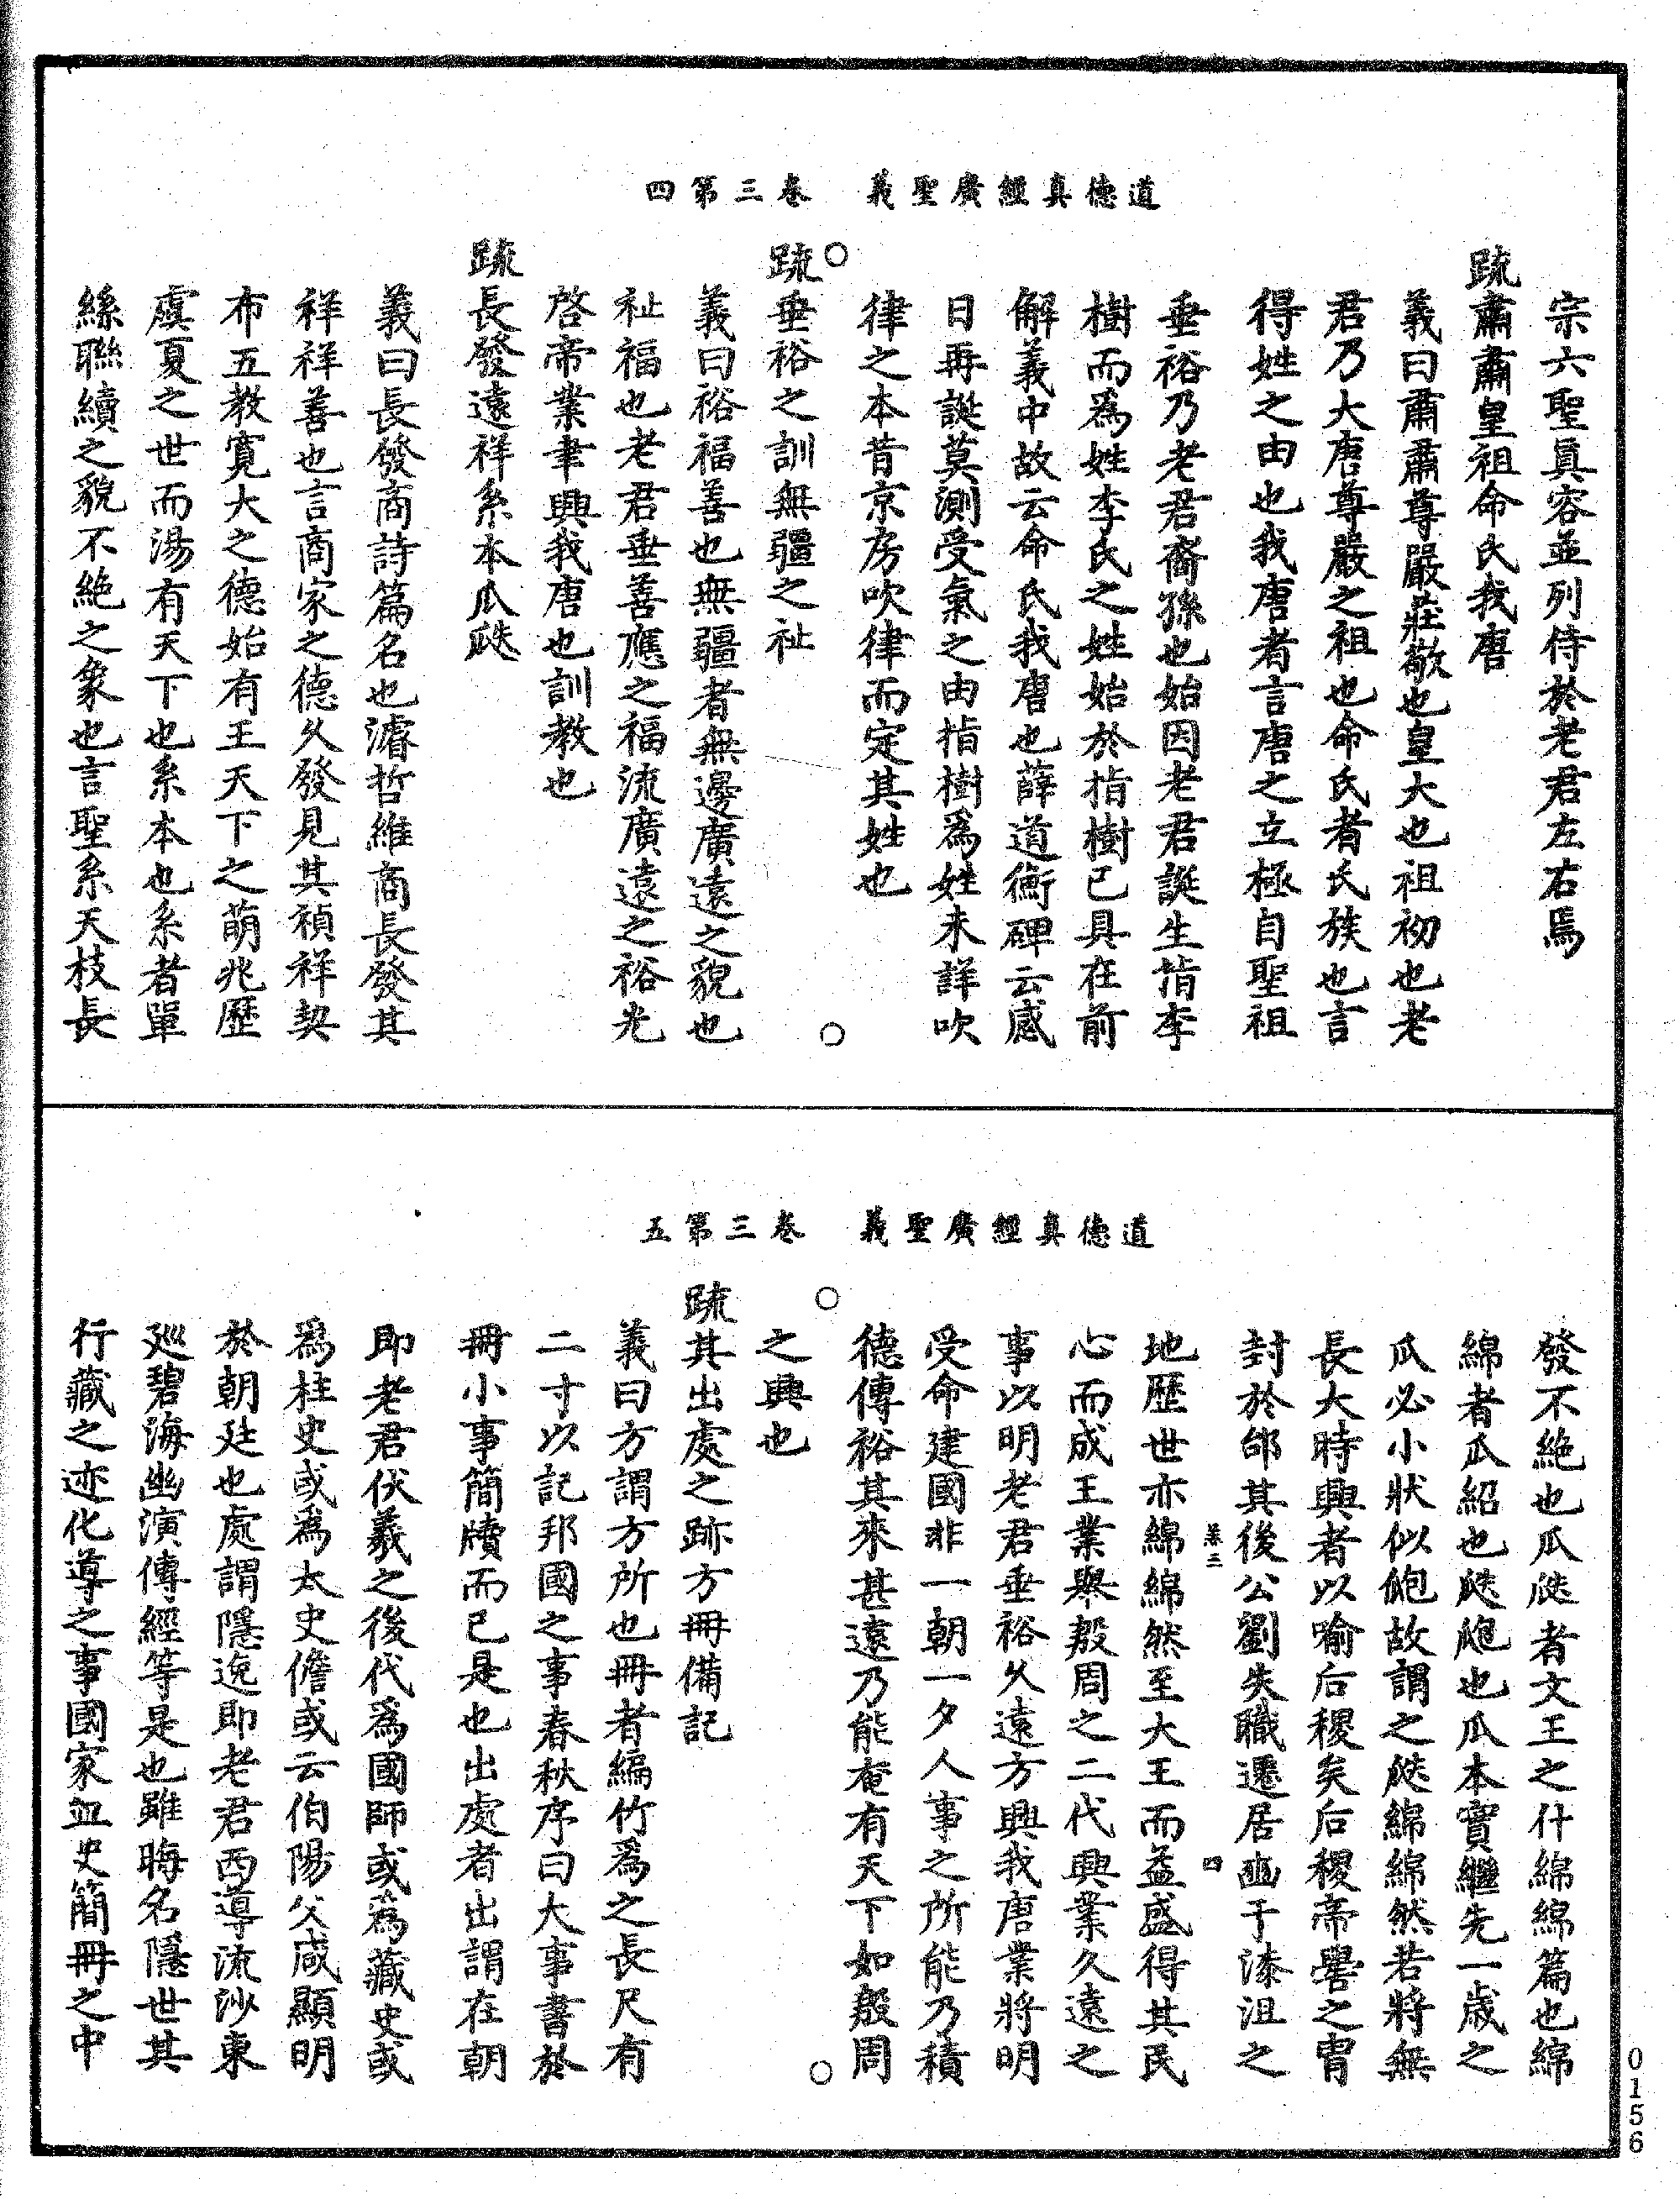 道德真經廣聖義　卷三第四
宗六聖眞容並列侍於老君左右焉
疏肅肅皇祖命氏我唐
義曰肅肅尊嚴莊敬也皇大也祖初也老
君乃大唐尊嚴之祖也命氏者氏族也言
得姓之由也我唐者言唐之立極自聖祖
垂裕乃老君裔孫也始因老君誕生指李
樹而爲姓李氏之姓始於指樹已具在前
解義中故云命氏我唐也薛道衡碑云感
日再誕莫測受氣之由指樹爲姓未詳吹
律之本昔京房吹律而定其姓也
疏垂裕之訓無疆之祉
義曰裕福善也無疆者無邊廣遠之貌也
祉福也老君垂善應之福流廣遠之裕光
啓帝業聿興我唐也訓教也
疏長發遠祥系本瓜瓞
義曰長發商詩篇名也濬哲維商長發其
祥祥善也言商家之德久發見其禎祥契
布五教寬大之德始有王天下之萌兆歷
虞夏之世而湯有天下也系本也系者單
絲聯續之貌不絕之象也言聖系天枝長
道德真經廣聖義　卷三第五
發不絕也瓜瓞者文王之什綿綿篇也綿
綿者瓜紹也瓞瓟也瓜本實繼先一歲之
瓜必小狀似瓟故謂之瓞綿綿然若將無
長大時興者以喻后稷矣后稷帝嚳之胄
封於邰其後公劉失職遷居豳于漆沮之
卷三　四
地歷世亦綿綿然至大王而益盛得其民
心而成王業舉殷周之二代興業久遠之
事以明老君垂裕久遠方興我唐業將明
受命建國非一朝一夕人事之所能乃積
德傳裕其來甚遠乃能奄有天下如殷周
之興也
疏其出處之跡方冊備記
義曰方謂方所也冊者編竹爲之長尺有
二寸以記邦國之事春秋序曰大事書於
冊小事簡牘而已是也出處者出謂在朝
即老君伏羲之後代爲國師或爲藏史或
爲柱史或爲太史儋或云伯陽父咸顯明
於朝廷也處謂隱逸即老君西導流沙東
廵碧海幽演傳經等是也雖晦名隱世其
行藏之迹化導之事國家並史簡冊之中
0156